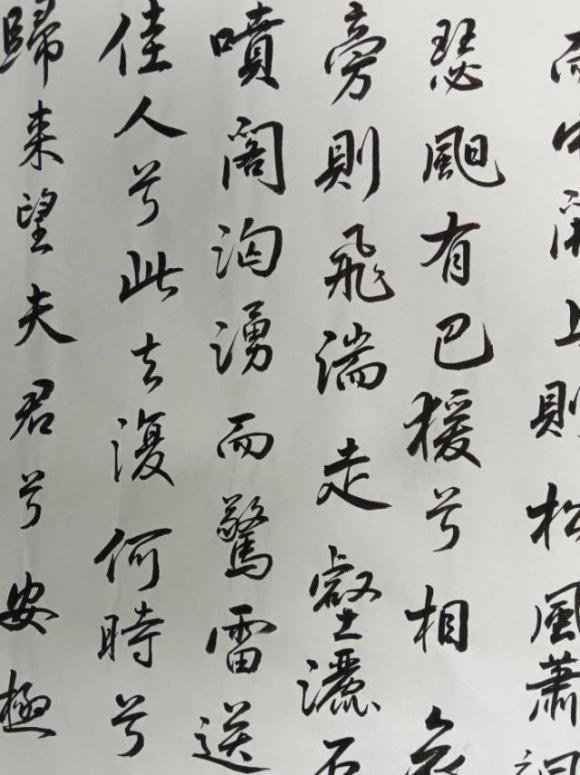 而中開上則松風蕭
瑟䫻有巴猨兮相哀
旁則飛湍走壑灑石
噴閣洶湧而驚雷送
佳人兮此去復何時兮
歸来望夫君兮安極